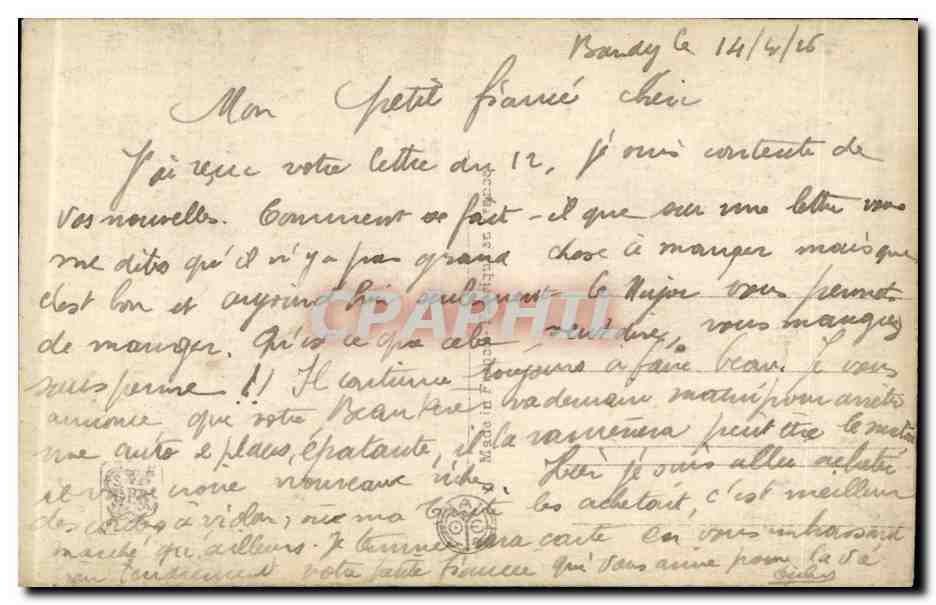 Bondy le 14/4/26
Mon petit fiancé chéri
J'ai reçu votre lettre du 12, je suis contente de
vos nouvelles. Comment se fait-il que sur une lettre vous
me dites qu'il n'y a pas grand chose à manger mais que
c'est bon et aujourd'hui seulement le Major vous permet
de manger. Qu'es ce que cela veut dire, vous mangiez
sans permis !! Il continue toujours a faire beau. Je vous
annonce que votre Beau Père va demain matin pour arrêter
une auto 2 places, épatante, il la ramènera peut être le
il nouveaux riches. Hier je suis allée acheté
des cordes à violon, ma les achetait, c'est meilleur
marché qu'ailleurs. Je termine ma carte en vous embrassant
tendrement votre petite fiancée qui vous aime pour la vie
CPAPHIL
Made in France